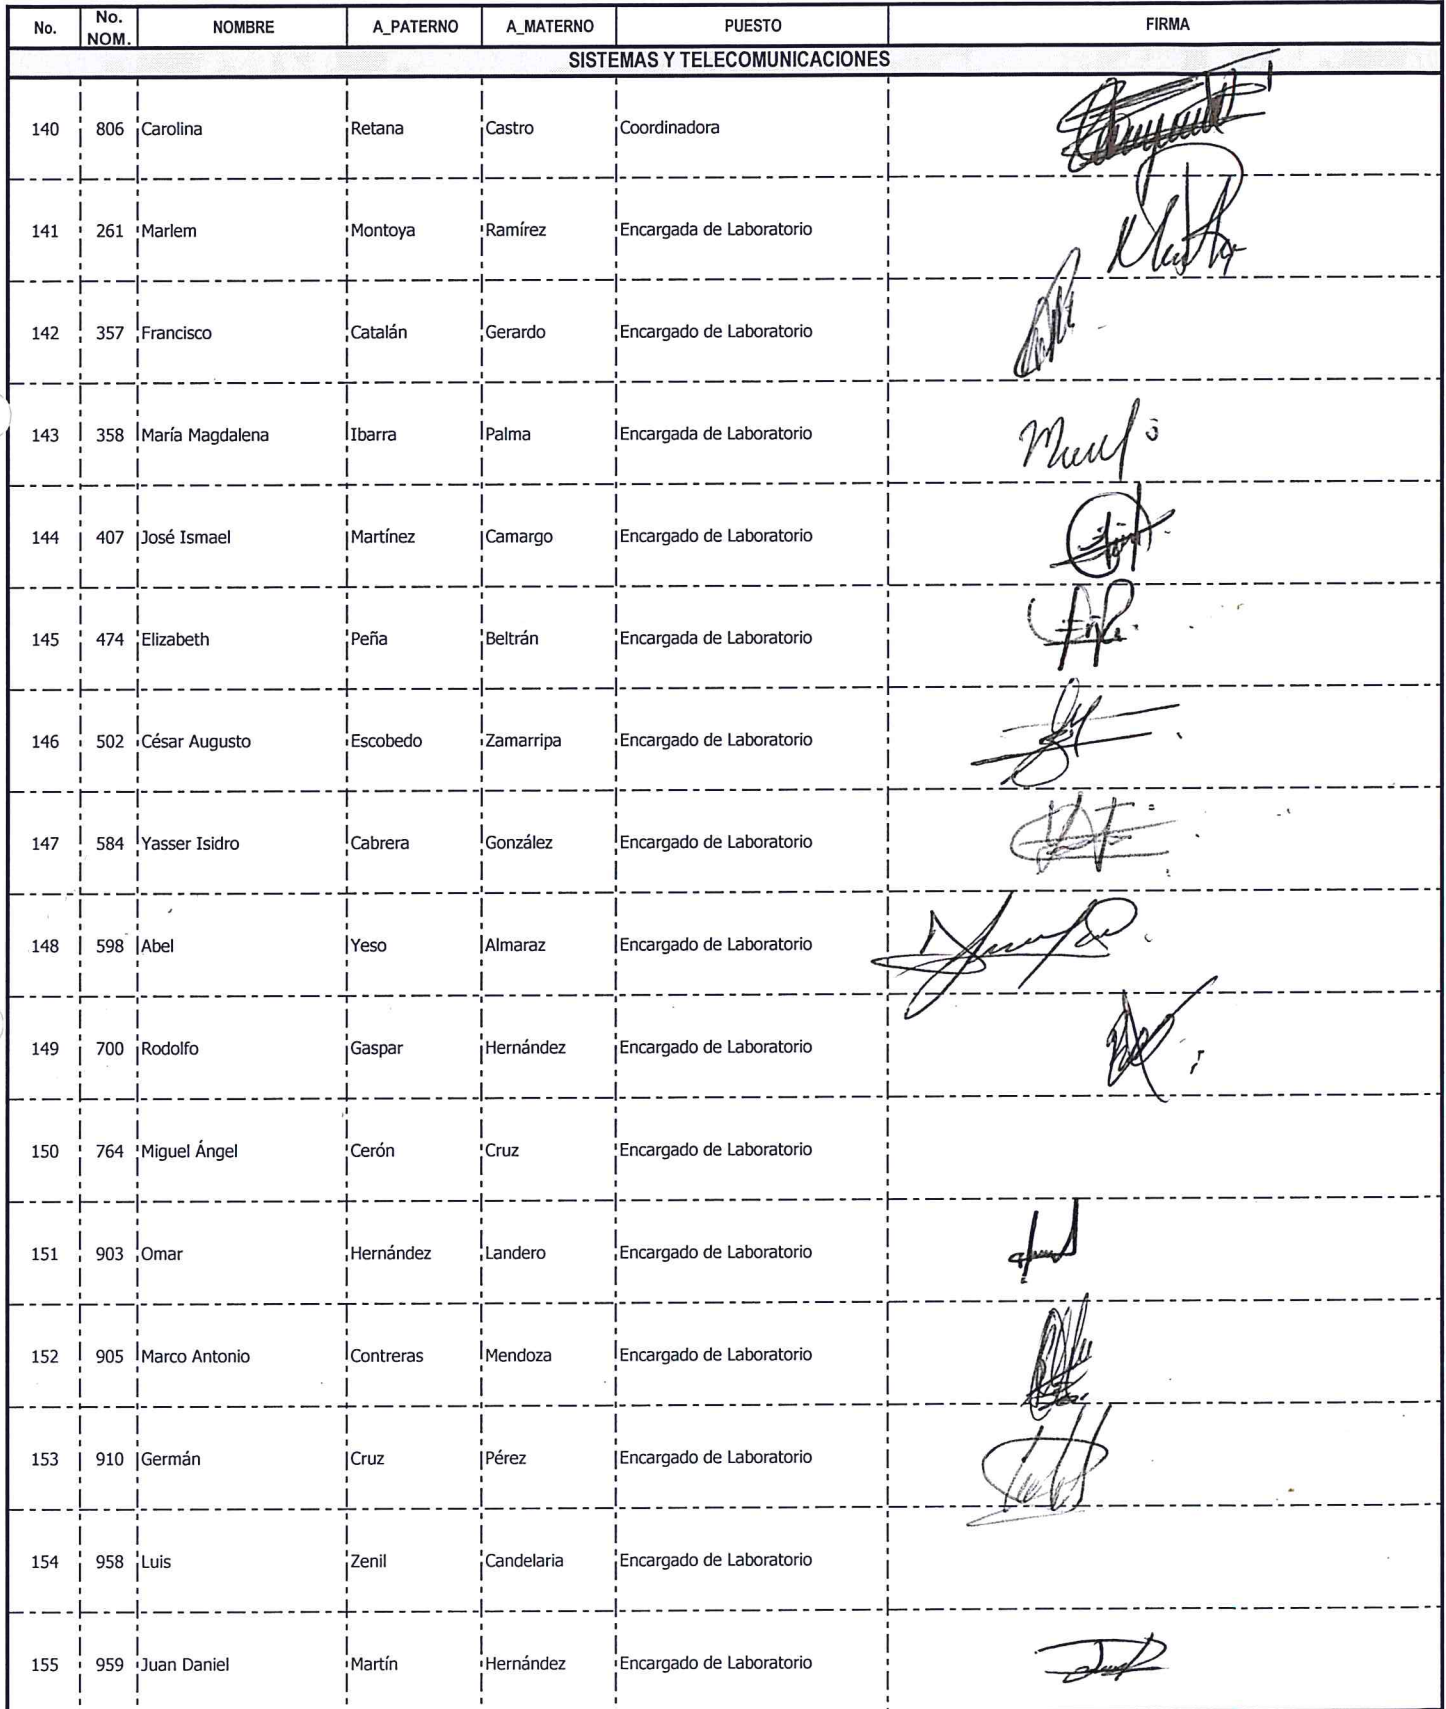 No. No. NOM. NOMBRE A_PATERNO A_MATERNO PUESTO FIRMA
SISTEMAS Y TELECOMUNICACIONES
140 806 Carolina Retana Castro Coordinadora
141 261 Marlem Montoya Ramírez Encargada de Laboratorio
142 357 Francisco Catalán Gerardo Encargado de Laboratorio
143 358 María Magdalena Ibarra Palma Encargada de Laboratorio
144 407 José Ismael Martínez Camargo Encargado de Laboratorio
145 474 Elizabeth Peña Beltrán Encargada de Laboratorio
146 502 César Augusto Escobedo Zamarripa Encargado de Laboratorio
147 584 Yasser Isidro Cabrera González Encargado de Laboratorio
148 598 Abel Yeso Almaraz Encargado de Laboratorio
149 700 Rodolfo Gaspar Hernández Encargado de Laboratorio
150 764 Miguel Ángel Cerón Cruz Encargado de Laboratorio
151 903 Omar Hernández Landero Encargado de Laboratorio
152 905 Marco Antonio Contreras Mendoza Encargado de Laboratorio
153 910 Germán Cruz Pérez Encargado de Laboratorio
154 958 Luis Zenil Candelaria Encargado de Laboratorio
155 959 Juan Daniel Martín Hernández Encargado de Laboratorio